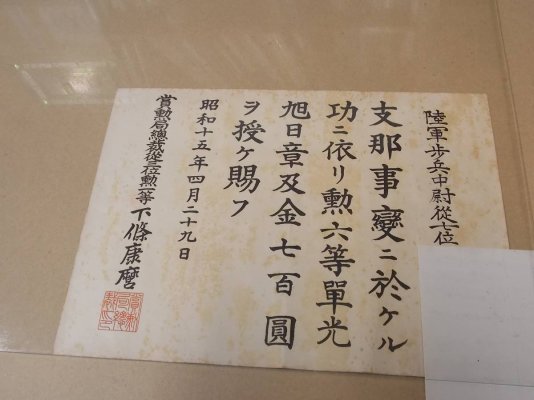 陸軍歩兵中尉從七位
支那事變ニ於ケル
功ニ依リ勲六等單光
旭日章及金七百圓
ヲ授ケ賜フ
昭和十五年四月二十九日
賞勲局總裁從三位勲一等下條康麿